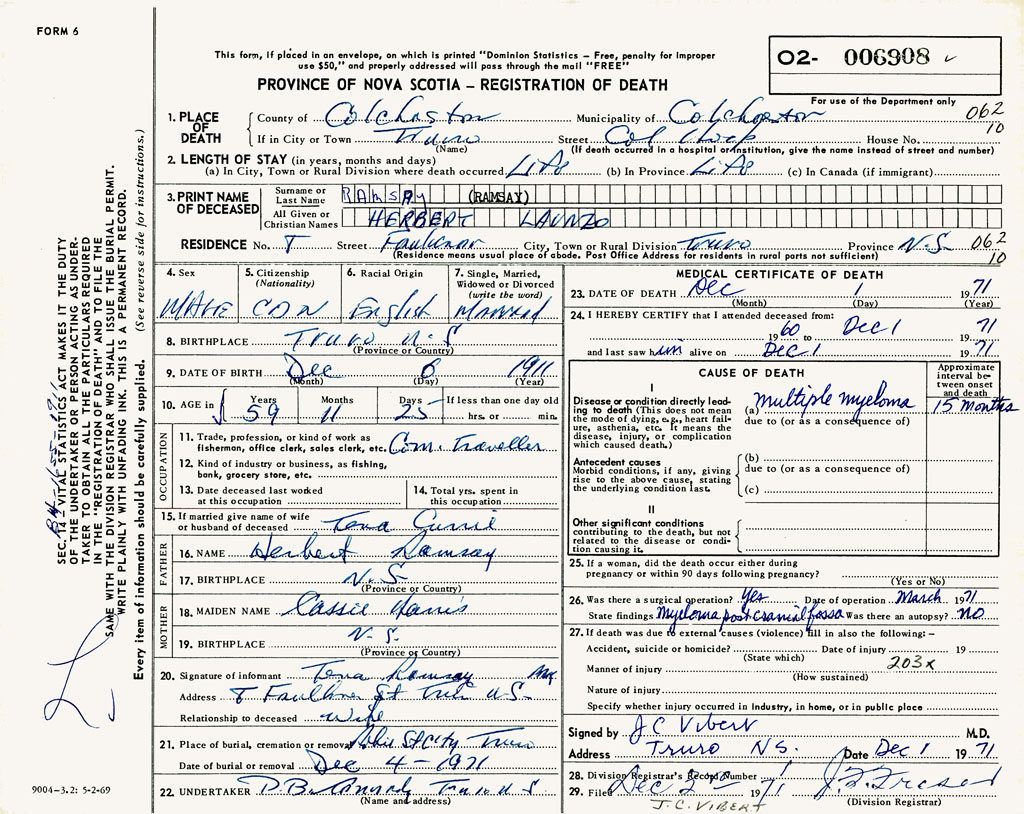 FORM 6
This form, if placed in an envelope, on which is printed "Dominion Statistics – Free, penalty for improper
use $50," and properly addressed will pass through the mail "FREE"
O2- 006908
PROVINCE OF NOVA SCOTIA – REGISTRATION OF DEATH
For use of the Department only
1. PLACE OF DEATH
County of Colchester Municipality of Colchester 062
If in City or Town Truro Street Col House No. 10
(Name) (If death occurred in a hospital or institution, give the name instead of street and number)
2. LENGTH OF STAY (in years, months and days)
(a) In City, Town or Rural Division where death occurred Life (b) In Province Life (c) In Canada (if immigrant)
3. PRINT NAME OF DECEASED
Surname or Last Name RAMSAY (RAMSAY)
All Given or Christian Names HERBERT LAUNZO
RESIDENCE No. Street Faulkner City, Town or Rural Division Truro Province N.S. 062
(Residence means usual place of abode. Post Office Address for residents in rural parts not sufficient) 10
4. Sex MALE
5. Citizenship (Nationality) CDN
6. Racial Origin English
7. Single, Married, Widowed or Divorced (write the word) Married
8. BIRTHPLACE Truro N.S
(Province or Country)
9. DATE OF BIRTH Dec 6 1911
(Month) (Day) (Year)
10. AGE in Years 59 Months 11 Days 25 If less than one day old
hrs. or min.
OCCUPATION
11. Trade, profession, or kind of work as
fisherman, office clerk, sales clerk, etc. Com. Traveller
12. Kind of industry or business, as fishing,
bank, grocery store, etc.
13. Date deceased last worked at this occupation
14. Total yrs. spent in this occupation
15. If married give name of wife
or husband of deceased Tena Currie
FATHER
16. NAME Herbert Ramsay
17. BIRTHPLACE N.S
(Province or Country)
MOTHER
18. MAIDEN NAME Cassie Harris
19. BIRTHPLACE N.S.
(Province or Country)
20. Signature of informant Tena Ramsay
Address Faulkner St N.S
Relationship to deceased wife
21. Place of burial, cremation or removal Truro
Date of burial or removal Dec 4 - 1971
22. UNDERTAKER Truro N S
(Name and address)
MEDICAL CERTIFICATE OF DEATH
23. DATE OF DEATH Dec 1 1971
(Month) (Day) (Year)
24. I HEREBY CERTIFY that I attended deceased from:
1960 to Dec 1 1971
and last saw him alive on Dec 1 1971
CAUSE OF DEATH
Approximate interval between onset and death
I
Disease or condition directly leading
to death (This does not mean
the mode of dying, e.g., heart failure,
asthenia, etc. It means the
disease, injury, or complication
which caused death.)
(a) multiple myeloma 15 months
due to (or as a consequence of)
Antecedent causes
Morbid conditions, if any, giving
rise to the above cause, stating
the underlying condition last.
(b)
due to (or as a consequence of)
(c)
II
Other significant conditions
contributing to the death, but not
related to the disease or condition
causing it.
25. If a woman, did the death occur either during
pregnancy or within 90 days following pregnancy?
(Yes or No)
26. Was there a surgical operation? Yes Date of operation March 1971
State findings Myeloma post cranial fossa Was there an autopsy? NO
27. If death was due to external causes (violence) fill in also the following: –
Accident, suicide or homicide? Date of injury 19
(State which) 203x
Manner of injury
(How sustained)
Nature of injury
Specify whether injury occurred in industry, in home, or in public place
Signed by J C Vibert M.D.
Address Truro NS. Date Dec 1 1971
28. Division Registrar's Record Number
29. Filed Dec 2 1971
J.C. VIBERT (Division Registrar)
SEC. 14 – VITAL STATISTICS ACT MAKES IT THE DUTY
OF THE UNDERTAKER OR PERSON ACTING AS UNDERTAKER
TO OBTAIN ALL THE PARTICULARS REQUIRED
IN THE "REGISTRATION OF DEATH" AND TO FILE THE
SAME WITH THE DIVISION REGISTRAR WHO SHALL ISSUE THE BURIAL PERMIT.
WRITE PLAINLY WITH UNFADING INK. THIS IS A PERMANENT RECORD.
Every item of information should be carefully supplied. (See reverse side for instructions.)
9004-3.2: 5-2-69